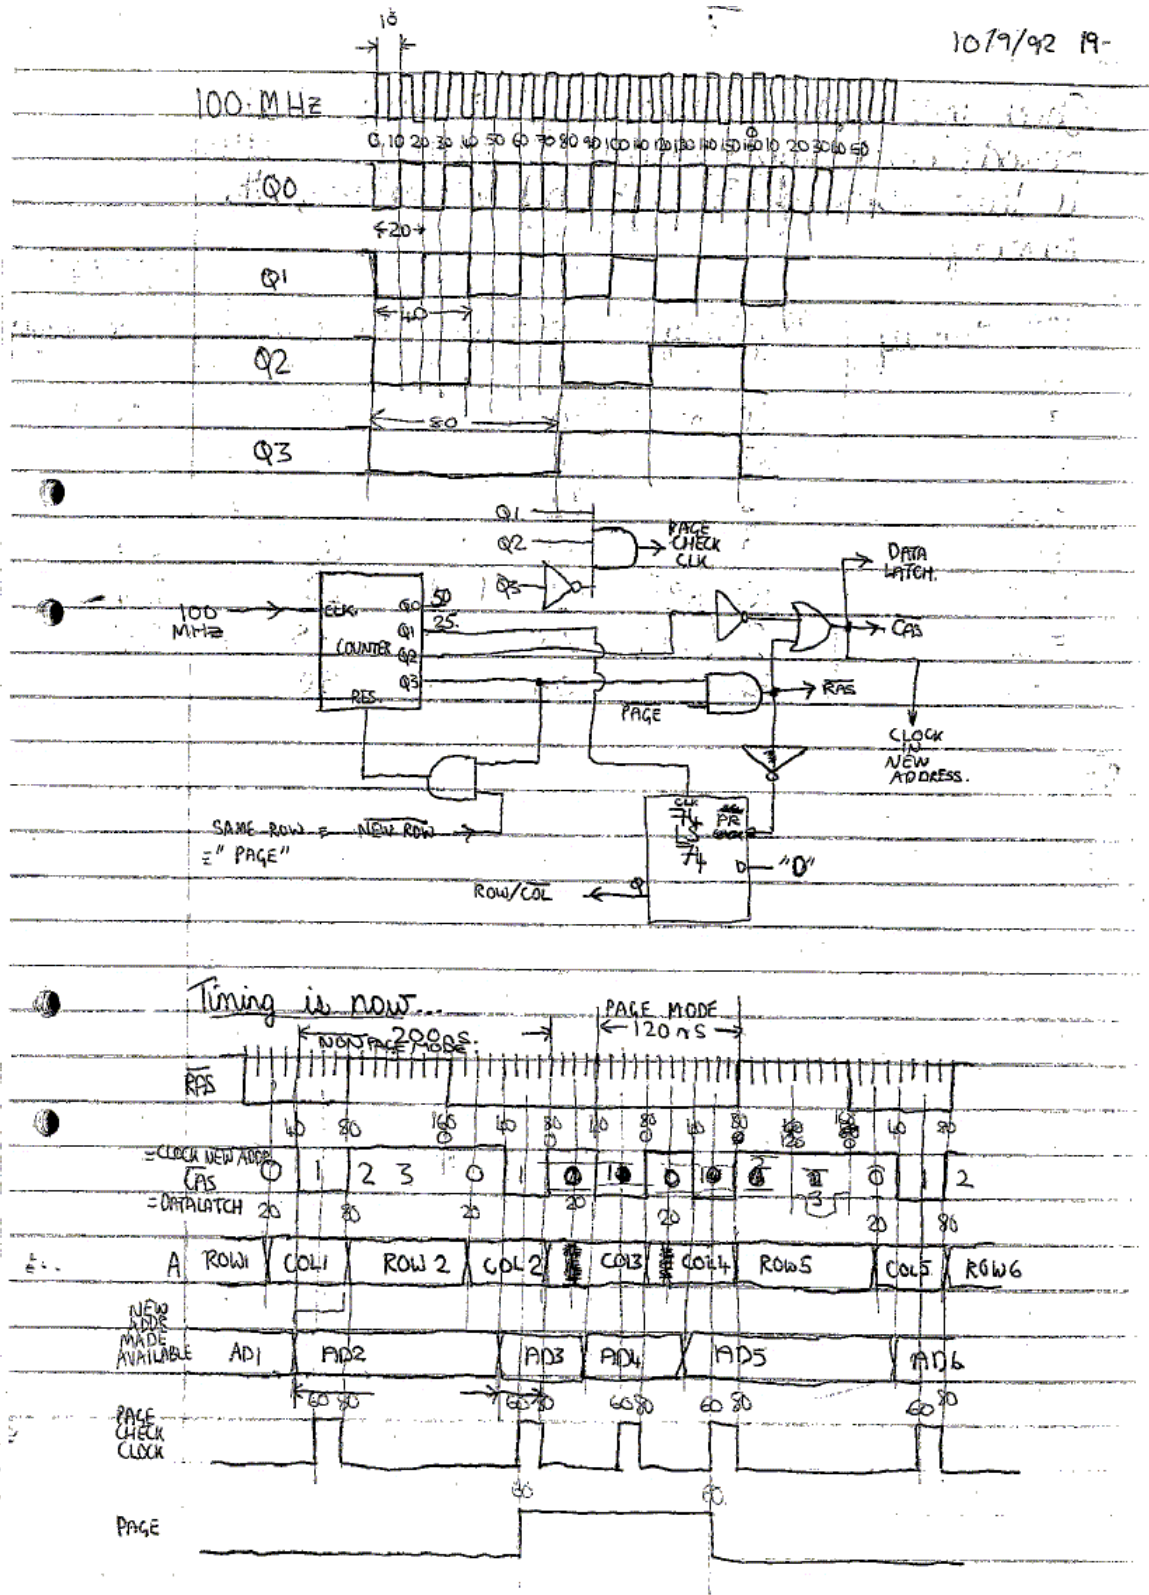 10
10/9/92 19-
100 MHZ
0 10 20 30 40 50 60 70 80 90 100 110 120 130 140 150 160 10 20 30 40 50
Q0
←20→
Q1
40
Q2
80
Q3
Q1
Q2
Q3
PAGE
CHECK
CLK
DATA
LATCH.
100
MHZ
CLK.
COUNTER
RES.
Q0 50
Q1 25
Q2
Q3
CAS
RAS
PAGE
CLOCK
IN
NEW
ADDRESS.
SAME ROW = NEW ROW
="PAGE"
CLK
74
LS
74
PR
D "0"
Q
ROW/COL
Timing is now...
NON PAGE MODE 200nS.
PAGE MODE
120nS
RAS
40 80 160 0 40 80 0 40 80 0 40 80 0 120 160 40 80
=CLOCK NEW ADDR
CAS
=DATALATCH
0 1 2 3 0 1 0 1 0 1 2 3 0 1 2
20 80 20 20 20 20 80
A ROW1 COL1 ROW 2 COL 2 COL3 COL4 ROW5 COL5 ROW6
NEW
ADDR
MADE
AVAILABLE
AD1 AD2 AD3 AD4 AD5 AD6
60 80 60 80 60 80 60 80 60 80
PAGE
CHECK
CLOCK
60 60
PAGE